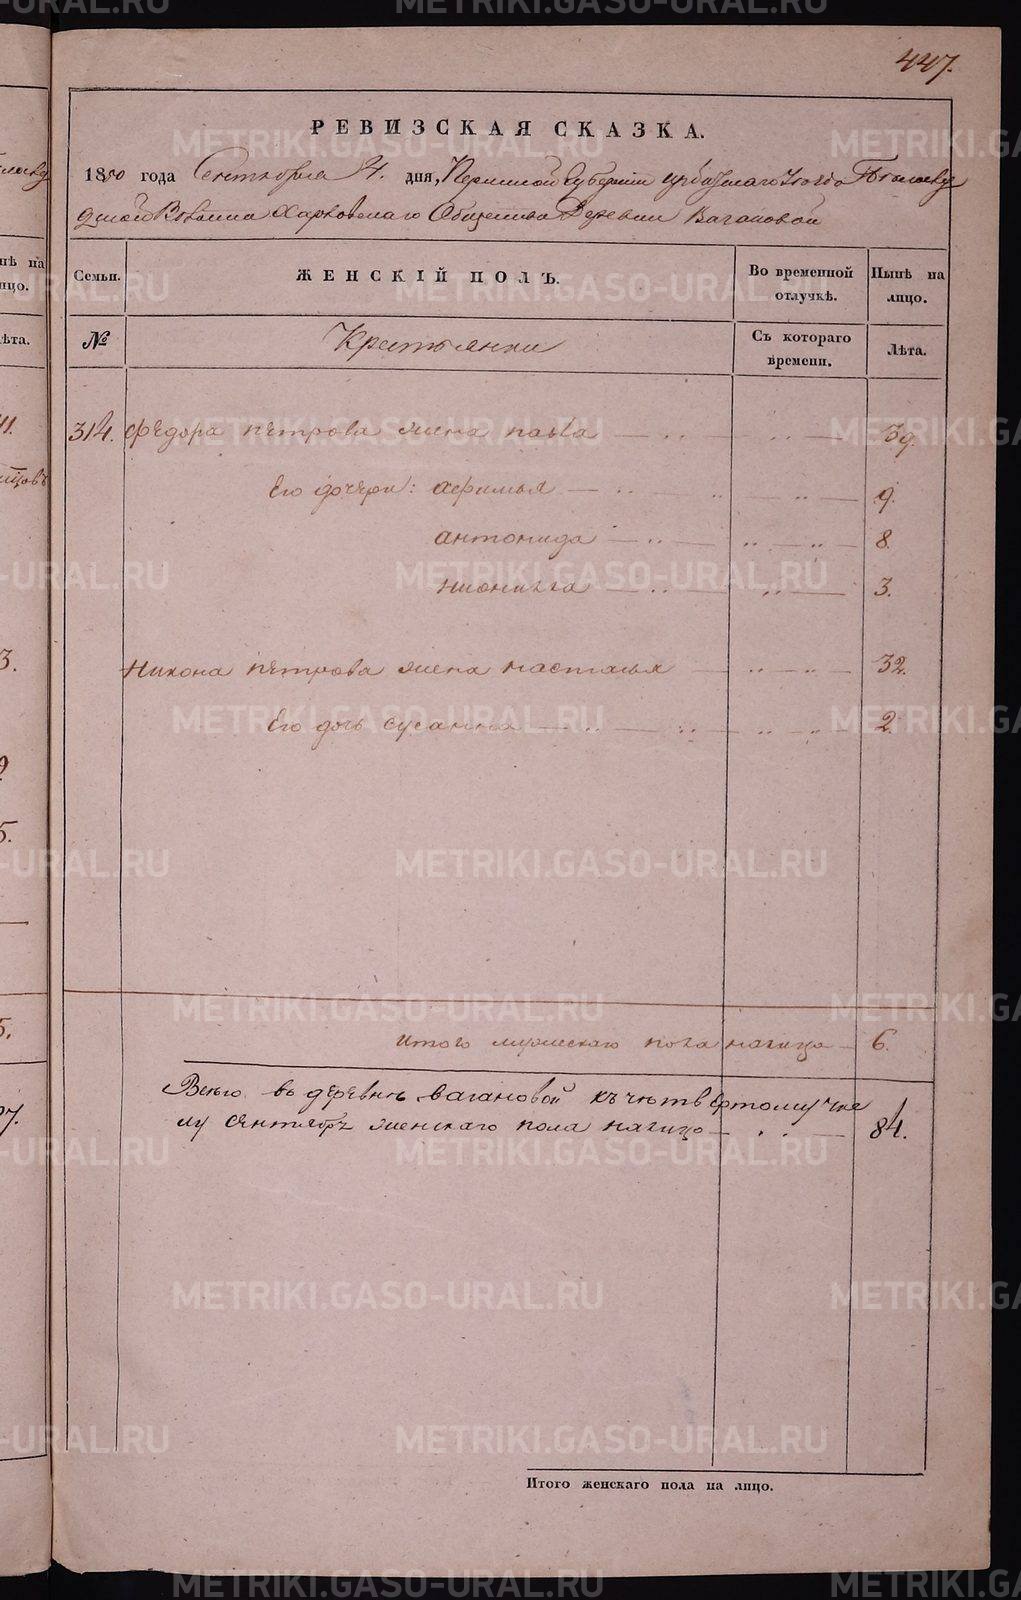 447.
РЕВИЗСКАЯ СКАЗКА.
1850 года Сентября 4. дня, Пермской Губернии Ирбитскаго Уезда Белослуд
цкой Волости Харловскаго Общества Деревни Вагановой
Семьи.
ЖЕНСКІЙ ПОЛЪ.
Во временной отлучкѣ.
Нынѣ на лицо.
№
Крестьянки
Съ котораго времени.
Лѣта.
314. Федора Петрова жена 39.
Его дочери: Афимья 9.
Антонида 8.
3.
Никона Петрова жена Настасья 32.
Его дочь Сусанна 2.
Итого женскаго пола налицо 6.
Всего въ деревнѣ Вагановой къ четвертому чис
лу Сентября женскаго пола налицо 84.
Итого женскаго пола на лицо.
METRIKI.GASO-URAL.RU